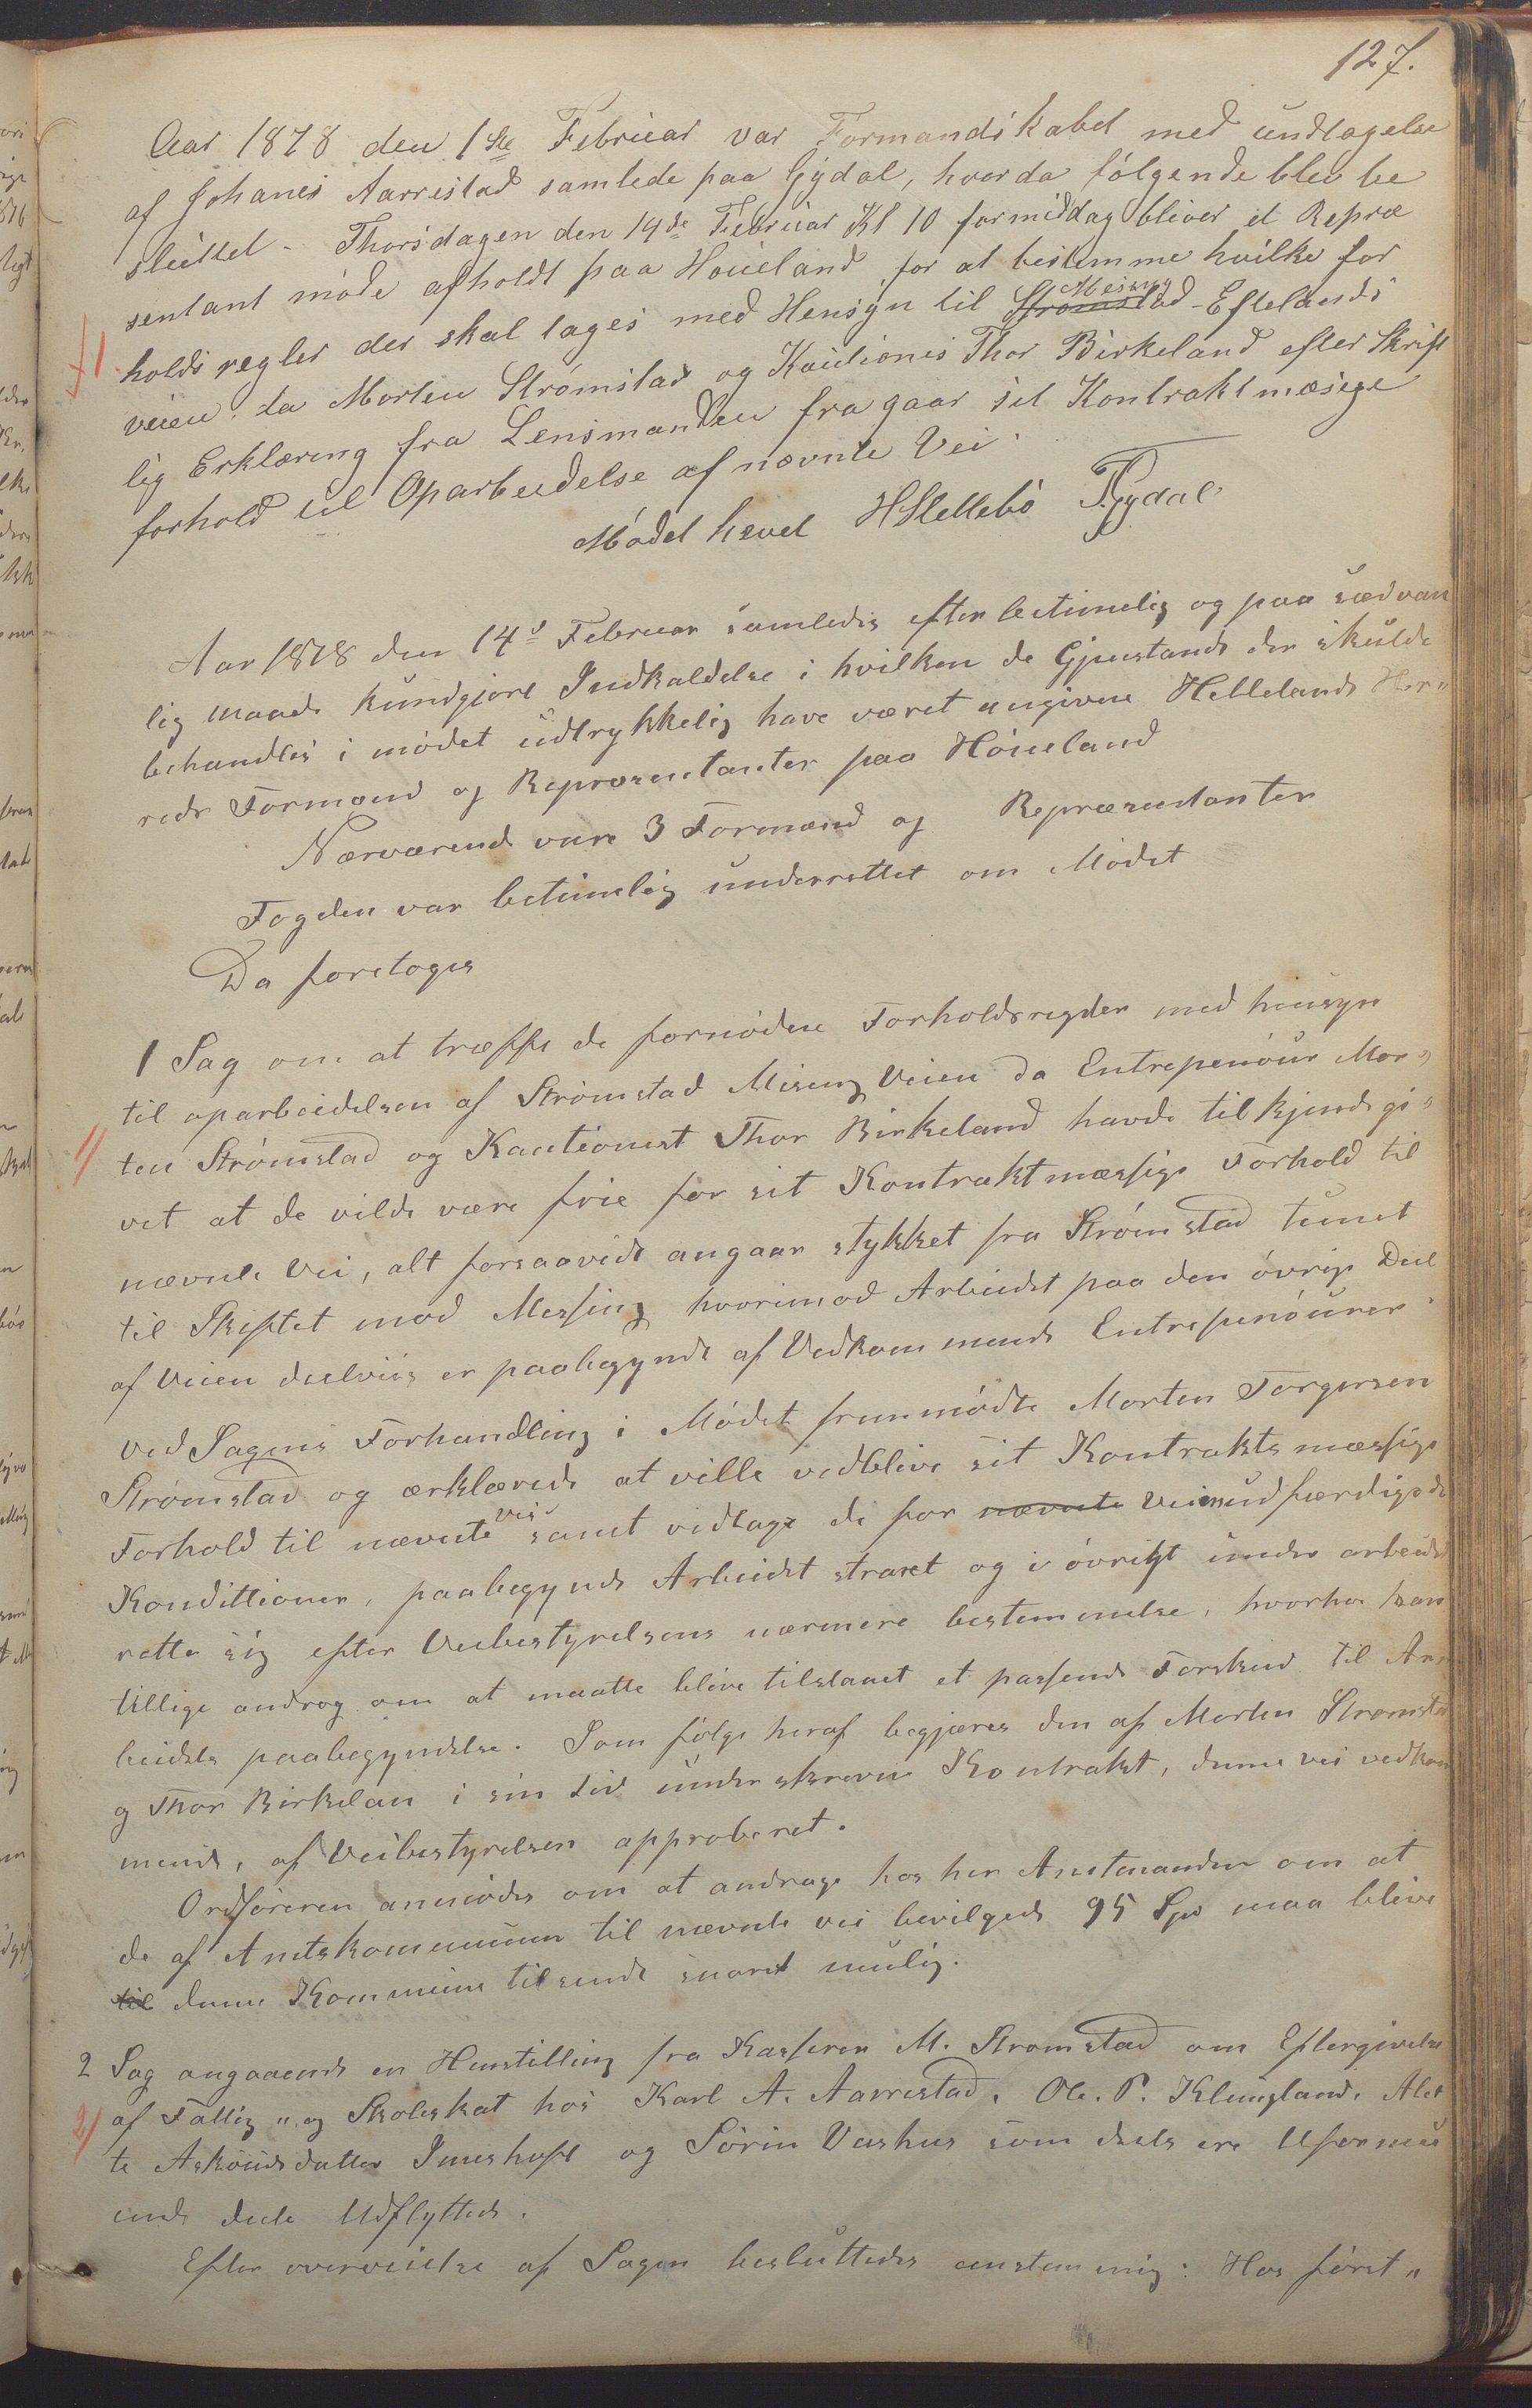 127.
Aar 1878 den 1ste Februar var Formandskabet med undtagelse
af Johanes Aarrestad samlede paa Gydal, hvor da følgende blev be
sluttet - Thorsdagen den 14de Februar Kl 10 formiddag bliver et Repræ
sentant møde afholdt paa Høueland for at bestemme hvilke for
holds regler der skal tages med Hensyn til Strømstad Mesing - Eftelands
veien da Morten Strømstad og Kautionis Thor Birkeland efter Skrift
lig Erklæring fra Lensmanden fra gaar sit Kontraktmæsige
forhold til Oparbeidelse af nævnte Vei
Mødet hævet HSlettebø TGydal
Aar 1878 den 14d Februar samledes efter betimelig og paa sædvan
lig maade kundgjort Indkaldelse i hvilken de Gjenstande der skulde
behandles i mødet udtrykkelig have været angivne Hellelands Her"
reds Formænd og Repræsentanter paa Høueland
Nærværende vare 3 Formænd og Repræsentanter
Fogden var betimelig underrettet om Mødet
Da foretoges
1 Sag om at træffe de fornødne Forholdsregler med hensyn
til oparbeidelsen af Strømstad Mising Veien da Entrepenøur Mor"
1/ ten Strømstad og Kautionist Thor Birkeland havde tilkjende gi"
vet at de vilde være frie for sit Kontraktmæssige Forhold til
nævnte Vei, alt forsaavidt angaar stykket fra Strømstad tunet
til Skiftet mod Messing hvorimod Arbeidet paa den øvrige Deel
af Veien deelviis er paabegyndt af Vedkommende Entrepenøurer
ved Sagens Forhandling i Mødet fremmødte Morten Torgersen
Strømstad og ærklærede at ville vedblive sit Kontrakts mæssige
Forhold til nævnte Vei samt vedtage de for nævnte Veie udfærdigede
Kondittioner, paabegynde Arbeidet straxt og i øvrigt under arbeidet
rette sig efter Veibestyrelsens nærmere bestemmelse, hvorhos han
tillige androg om at maatte blive tilstaaet et passende Forskud til Ar
beidets paabegyndelse. Som følge heraf begjæres den af Morten Strømstad
og Thor Birkelan i sin tid underskrevne Kontrakt, denne vei vedkom
mende, af Veibestyrelsen approberet.
Ordføreren anmodes om at andrage hos her Amtmanden om at
de af Amtskommunen til nævnte vei bevilgede 95 Spd maa blive
til denne Kommune tilsendt snarest mulig.
2 Sag angaaende en Henstilling fra Kasseren M. Strømstad om Eftergivelse
2/ af Fattig " og Skoleskat hos Karl A. Aarrestad, Ole. P. Klungland, Alet
te Askoudsdatter Ineshust og Sørin Vashus som deels ere Uformu
ende deels Udflyttede.
Efter overveielse af Sagen besluttedes enstemmig: Hos først"